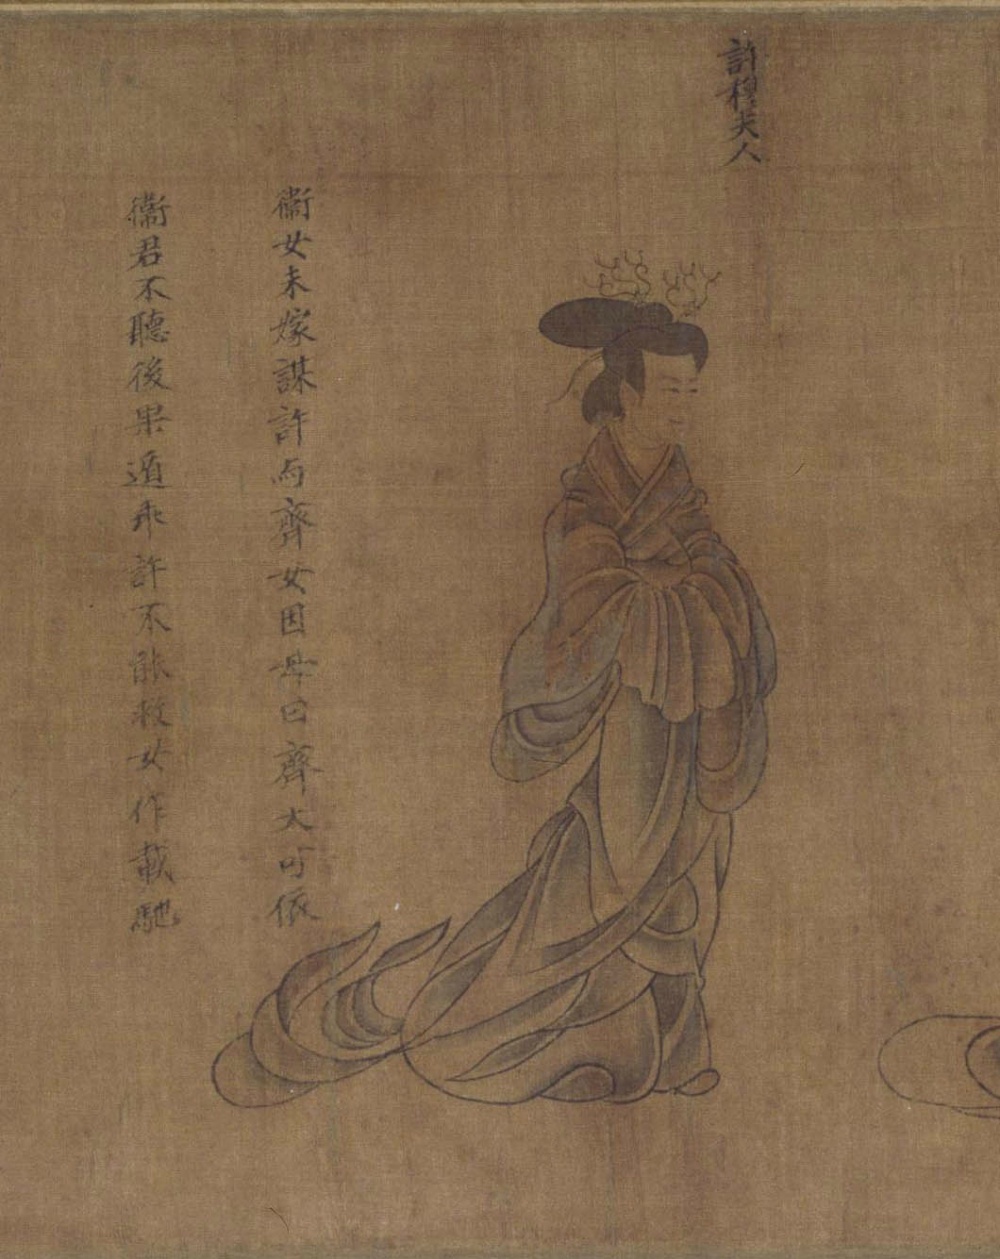 許穆夫人
衞女未嫁謀許與齊女因母曰齊大可依
衞君不聽後果遁乖許不能救女作載馳